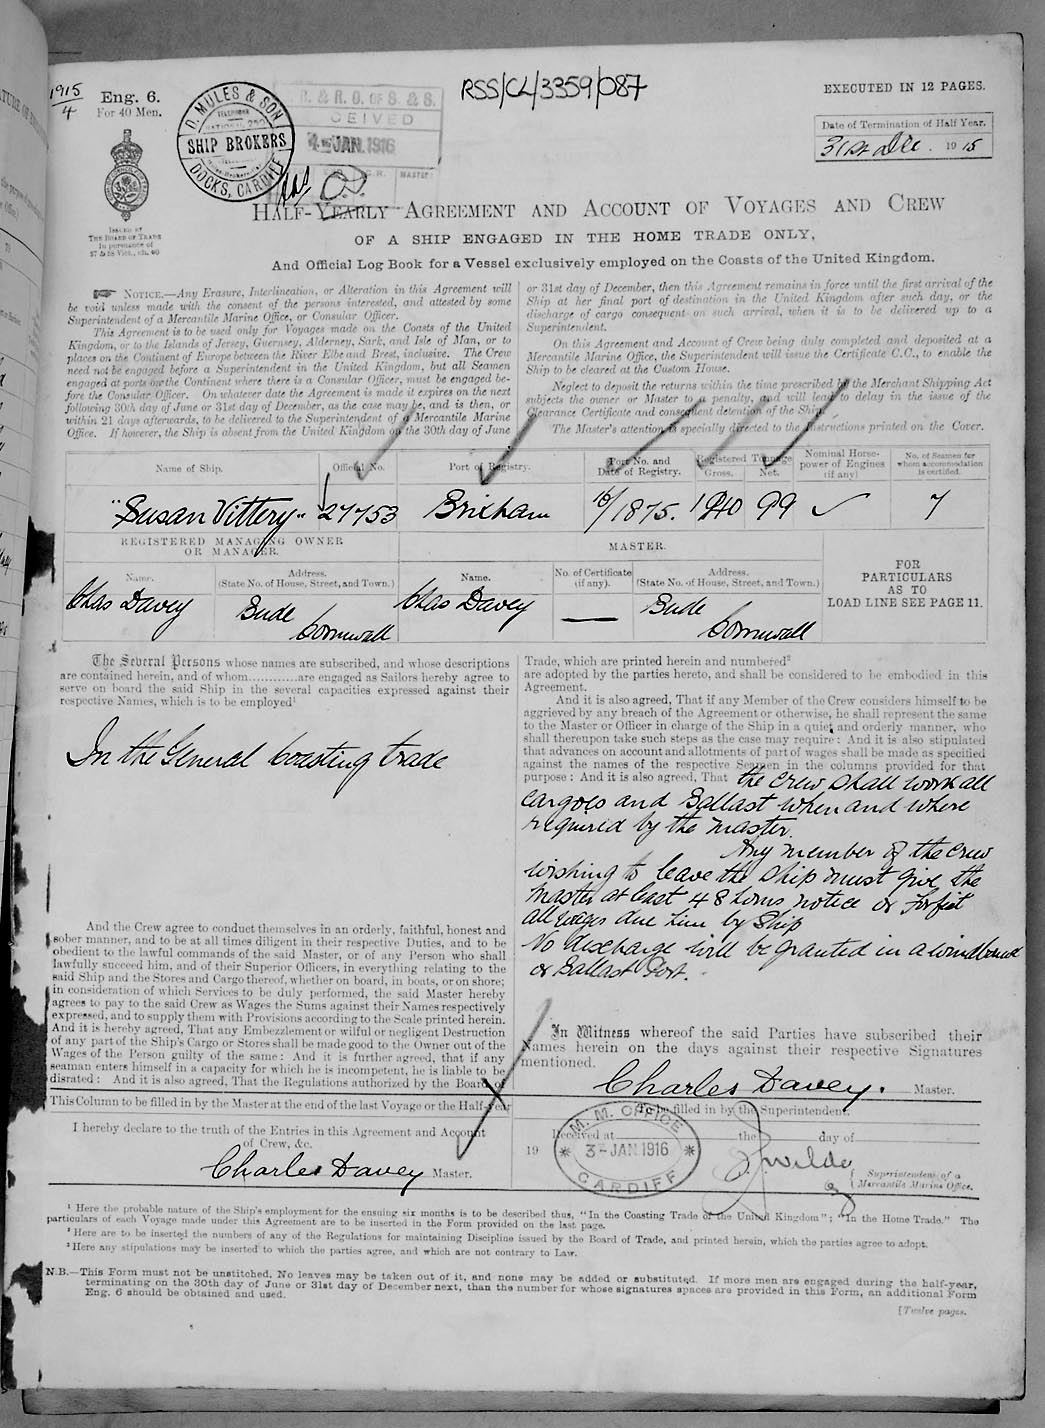 RSS/CL/3359/087
EXECUTED IN 12 PAGES.
1915
4
Eng. 6.
For 40 Men.
D. MULES & SON
TELEPHONE
SHIP BROKERS
DOCKS, CARDIFF
R. & R. G. OF S. & S.
CEIVED
4 - JAN. 1916
Date of Termination of Half Year.
31st Dec. 1915
ISSUED BY
THE BOARD OF TRADE
In pursuance of
57 & 58 Vict., ch. 60
HALF-YEARLY AGREEMENT AND ACCOUNT OF VOYAGES AND CREW
OF A SHIP ENGAGED IN THE HOME TRADE ONLY,
And Official Log Book for a Vessel exclusively employed on the Coasts of the United Kingdom.
NOTICE.—Any Erasure, Interlineation, or Alteration in this Agreement will
be void unless made with the consent of the persons interested, and attested by some
Superintendent of a Mercantile Marine Office, or Consular Officer.
This Agreement is to be used only for Voyages made on the Coasts of the United
Kingdom, or to the Islands of Jersey, Guernsey, Alderney, Sark, and Isle of Man, or to
places on the Continent of Europe between the River Elbe and Brest, inclusive. The Crew
need not be engaged before a Superintendent in the United Kingdom, but all Seamen
engaged at ports on the Continent where there is a Consular Officer, must be engaged be-
fore the Consular Officer. On whatever date the Agreement is made it expires on the next
following 30th day of June or 31st day of December, as the case may be, and is then, or
within 21 days afterwards, to be delivered to the Superintendent of a Mercantile Marine
Office. If however, the Ship is absent from the United Kingdom on the 30th day of June
or 31st day of December, then this Agreement remains in force until the first arrival of the
Ship at her final port of destination in the United Kingdom after such day, or the
discharge of cargo consequent on such arrival, when it is to be delivered up to a
Superintendent.
On this Agreement and Account of Crew being duly completed and deposited at a
Mercantile Marine Office, the Superintendent will issue the Certificate C.C., to enable the
Ship to be cleared at the Custom House.
Neglect to deposit the returns within the time prescribed by the Merchant Shipping Act
subjects the owner or Master to a penalty, and will lead to delay in the issue of the
Clearance Certificate and consequent detention of the Ship.
The Master's attention is specially directed to the Instructions printed on the Cover.
Name of Ship.
Official No.
Port of Registry.
Port No. and
Date of Registry.
Registered Tonnage
Gross. Net.
Nominal Horse-
power of Engines
(if any)
No. of Seamen for
whom accommodation
is certified.
"Susan Vittery" 27753 Brixham 10/1875. 140 99 7
REGISTERED MANAGING OWNER
OR MANAGER.
MASTER.
Name.
Address.
(State No. of House, Street, and Town.)
Name.
No. of Certificate
(if any).
Address.
(State No. of House, Street, and Town.)
FOR
PARTICULARS
AS TO
LOAD LINE SEE PAGE 11.
Chas Davey Bude Cornwall Chas Davey — Bude Cornwall
The Several Persons whose names are subscribed, and whose descriptions
are contained herein, and of whom............are engaged as Sailors hereby agree to
serve on board the said Ship in the several capacities expressed against their
respective Names, which is to be employed¹
In the General Coasting trade
And the Crew agree to conduct themselves in an orderly, faithful, honest and
sober manner, and to be at all times diligent in their respective Duties, and to be
obedient to the lawful commands of the said Master, or of any Person who shall
lawfully succeed him, and of their Superior Officers, in everything relating to the
said Ship and the Stores and Cargo thereof, whether on board, in boats, or on shore;
in consideration of which Services to be duly performed, the said Master hereby
agrees to pay to the said Crew as Wages the Sums against their Names respectively
expressed, and to supply them with Provisions according to the Scale printed herein.
And it is hereby agreed, That any Embezzlement or wilful or negligent Destruction
of any part of the Ship's Cargo or Stores shall be made good to the Owner out of the
Wages of the Person guilty of the same: And it is further agreed, that if any
seaman enters himself in a capacity for which he is incompetent, he is liable to be
disrated: And it is also agreed, That the Regulations authorized by the Board of
Trade, which are printed herein and numbered²
are adopted by the parties hereto, and shall be considered to be embodied in this
Agreement.
And it is also agreed, That if any Member of the Crew considers himself to be
aggrieved by any breach of the Agreement or otherwise, he shall represent the same
to the Master or Officer in charge of the Ship in a quiet and orderly manner, who
shall thereupon take such steps as the case may require: And it is also stipulated
that advances on account and allotments of part of wages shall be made as specified
against the names of the respective Seamen in the columns provided for that
purpose: And it is also agreed, That the crew shall work all
cargoes and Ballast when and where
required by the master.
Any member of the crew
wishing to leave the ship must give the
master at least 48 hours notice or forfeit
all wages due him by Ship
No discharge will be granted in a windbound
or Ballast Port.
In Witness whereof the said Parties have subscribed their
Names herein on the days against their respective Signatures
mentioned.
Charles Davey. Master.
This Column to be filled in by the Master at the end of the last Voyage or the Half-Year
I hereby declare to the truth of the Entries in this Agreement and Account
of Crew, &c.
Charles Davey Master.
To be filled in by the Superintendent.
Received at the day of
19
M. M. OFFICE
3 - JAN 1916
CARDIFF
Superintendent of a
Mercantile Marine Office.
¹ Here the probable nature of the Ship's employment for the ensuing six months is to be described thus, "In the Coasting Trade of the United Kingdom"; "In the Home Trade." The
particulars of each Voyage made under this Agreement are to be inserted in the Form provided on the last page.
² Here are to be inserted the numbers of any of the Regulations for maintaining Discipline issued by the Board of Trade, and printed herein, which the parties agree to adopt.
³ Here any stipulations may be inserted to which the parties agree, and which are not contrary to Law.
N.B.—This Form must not be unstitched. No leaves may be taken out of it, and none may be added or substituted. If more men are engaged during the half-year,
terminating on the 30th day of June or 31st day of December next, than the number for whose signatures spaces are provided in this Form, an additional Form
Eng. 6 should be obtained and used.
[Twelve pages.